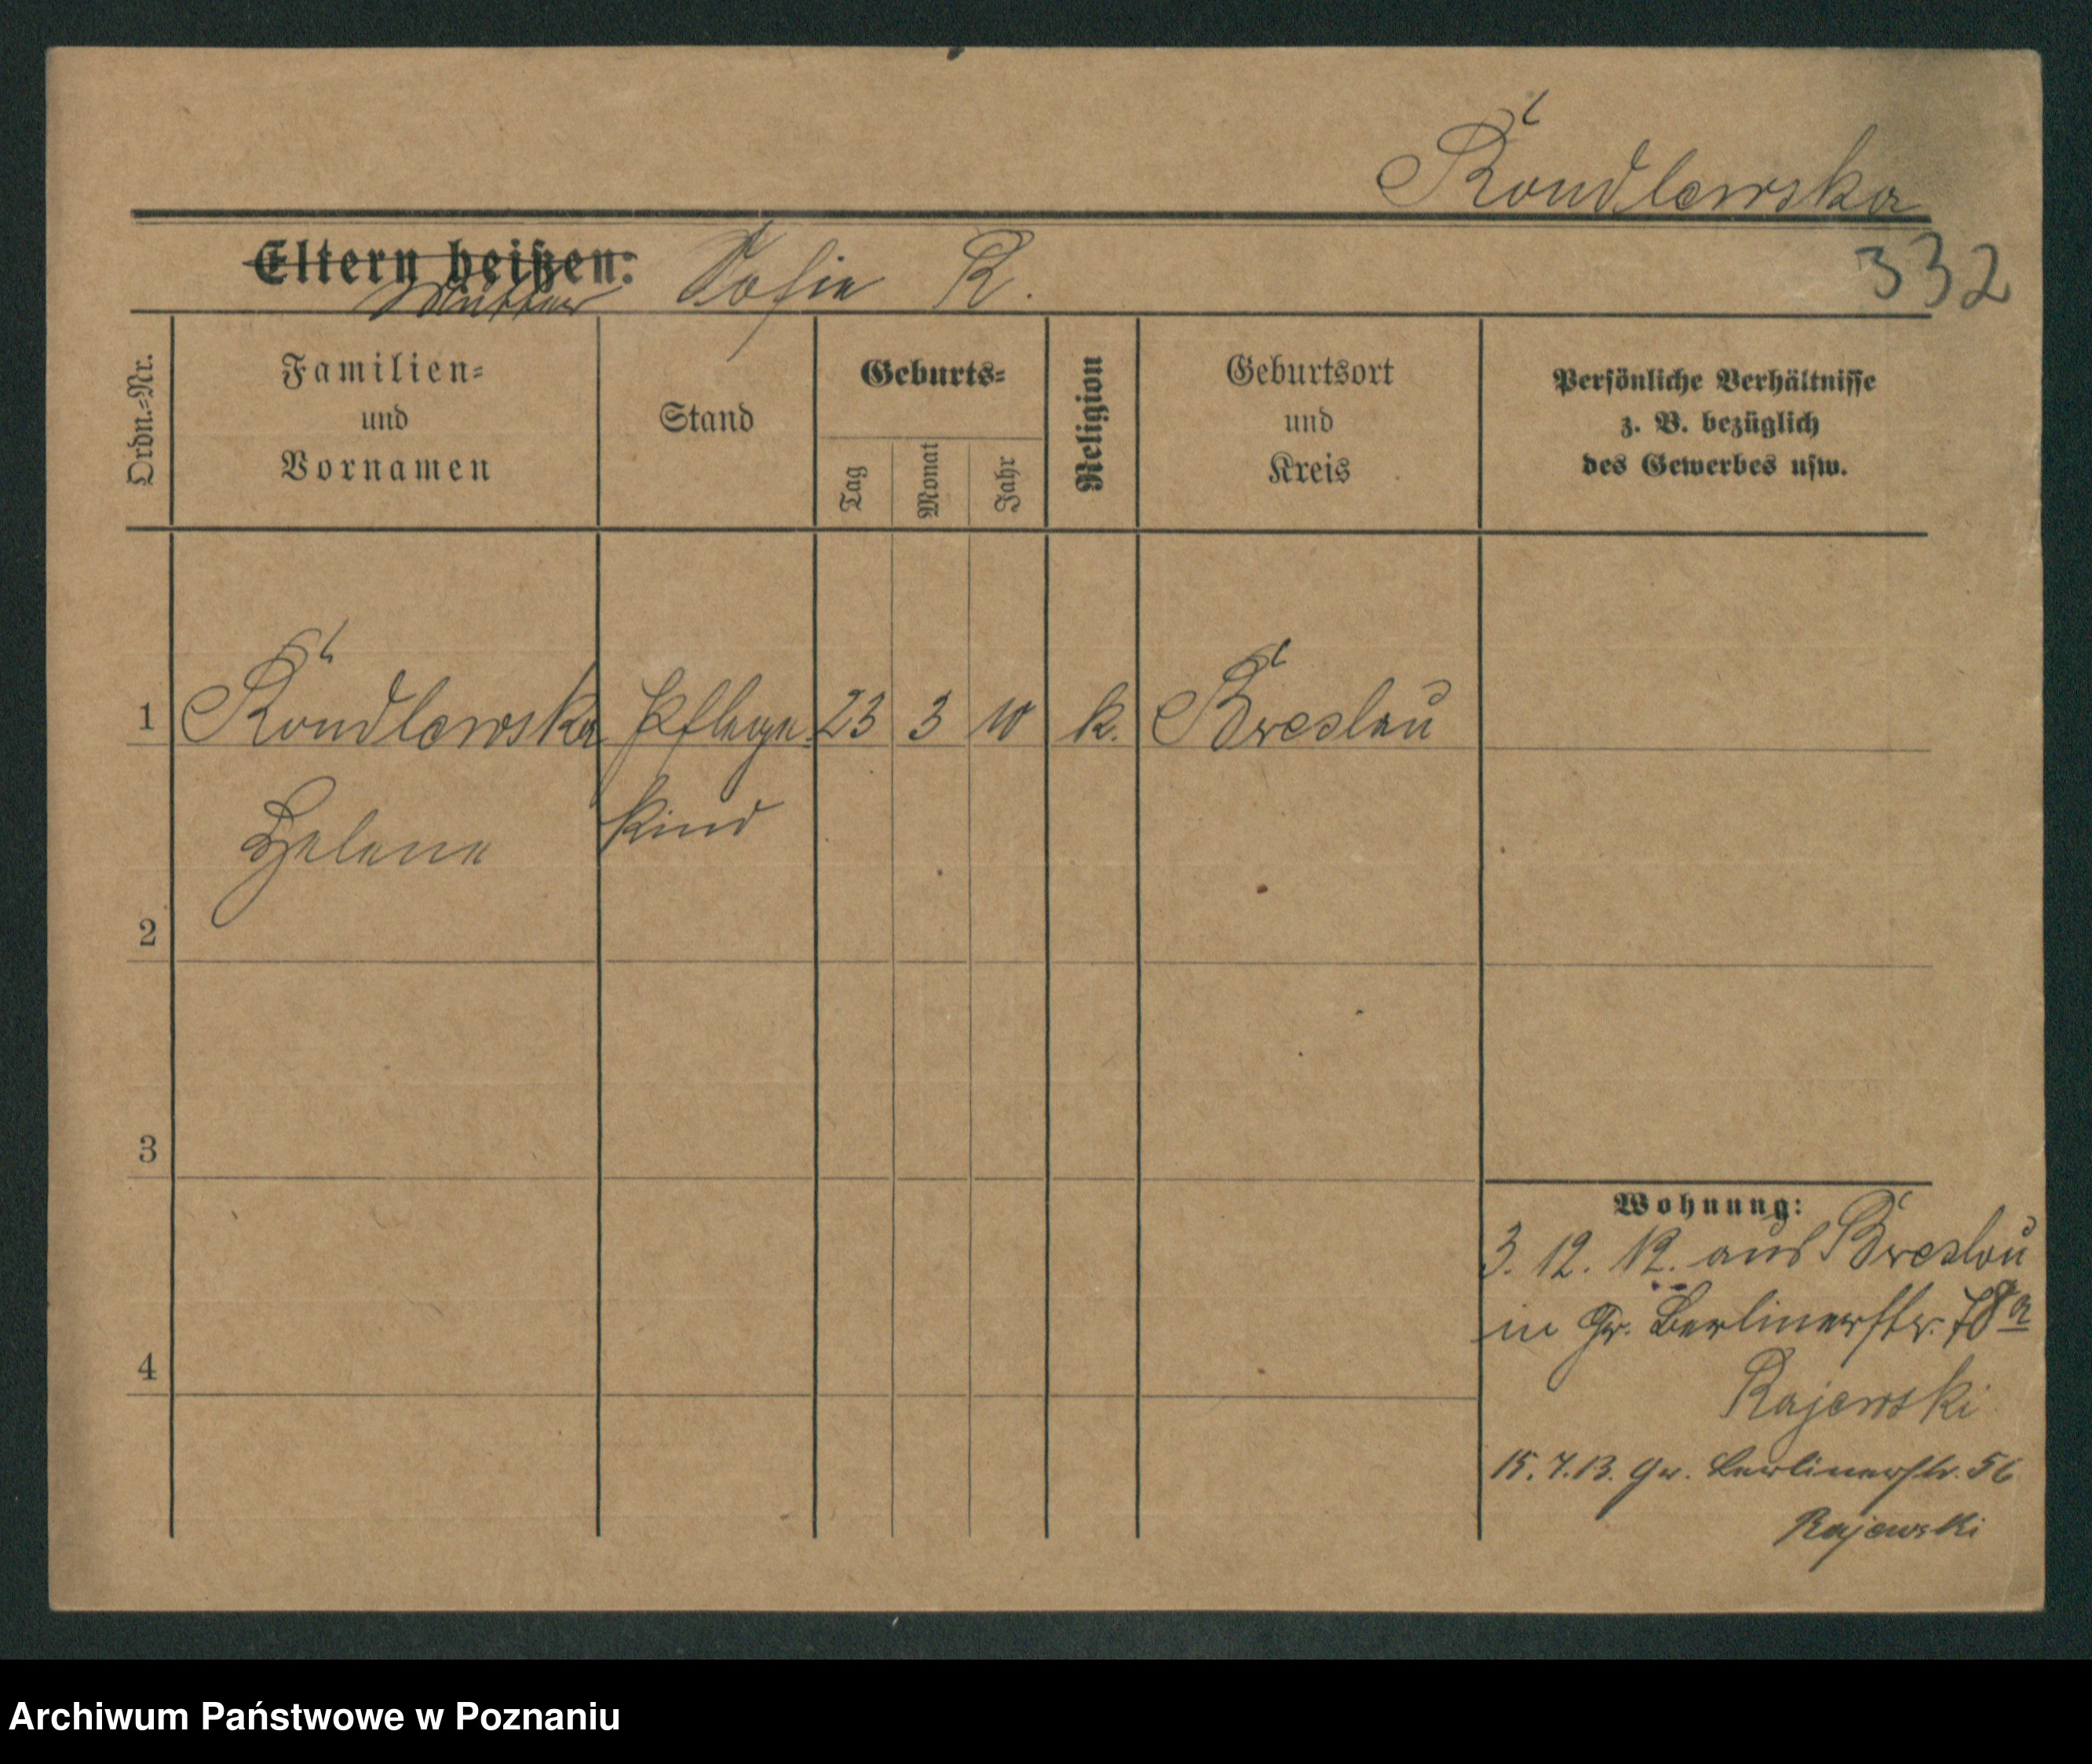 Rondlewska
Eltern heißen: Sofie R.
Mutter
332
Ordn.-Nr.
Familien-
und
Vornamen
Stand
Geburts-
Tag
Monat
Jahr
Religion
Geburtsort
und
Kreis
Persönliche Verhältnisse
z. B. bezüglich
des Gewerbes usw.
1 Rondlewska Pflege- 23 3 10 k. Breslau
Helene kind
2
3
4
Wohnung:
3. 12. 12. aus Breslau
in Gr. Berlinerstr. 78a
Rajewski
15. 7. 13. Gr. Berlinerstr. 56
Rajewski
Archiwum Państwowe w Poznaniu